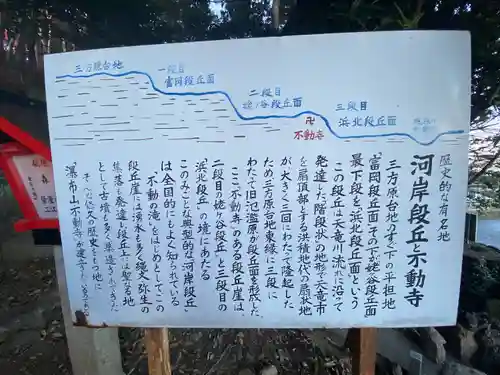 三方原台地
一段目
富岡段丘面
二段目
姥ヶ谷段丘面
三段目
浜北段丘面
卍
不動寺
歴史的な有名地
河岸段丘と不動寺
三方原台地のすぐ下の平坦地
富岡段丘面その下が姥谷段丘面
最下段を浜北段丘面という
この段丘は天竜川流れに沿って
発達した「階段状の地形で天竜市
を扇頂部とする洪積時代の扇状地
が大きく三回にわたって隆起した
ため三方原台地東縁に三段に
わたって旧氾濫原が段丘面を形成した
ここ不動寺のある段丘崖は、
二段目の姥ヶ谷段丘と三段目の
浜北段丘の境にあたる
このみごとな典型的な河岸段丘
は全国的にもよく知られている
「不動の滝」をはじめとしてこの
段丘崖には湧水も多く縄文弥生の
集落も発達し段丘上には聖なる地
として古墳も多く築造されてきた
その悠久の歴史をもつ地に
瀑布山不動寺が建つ